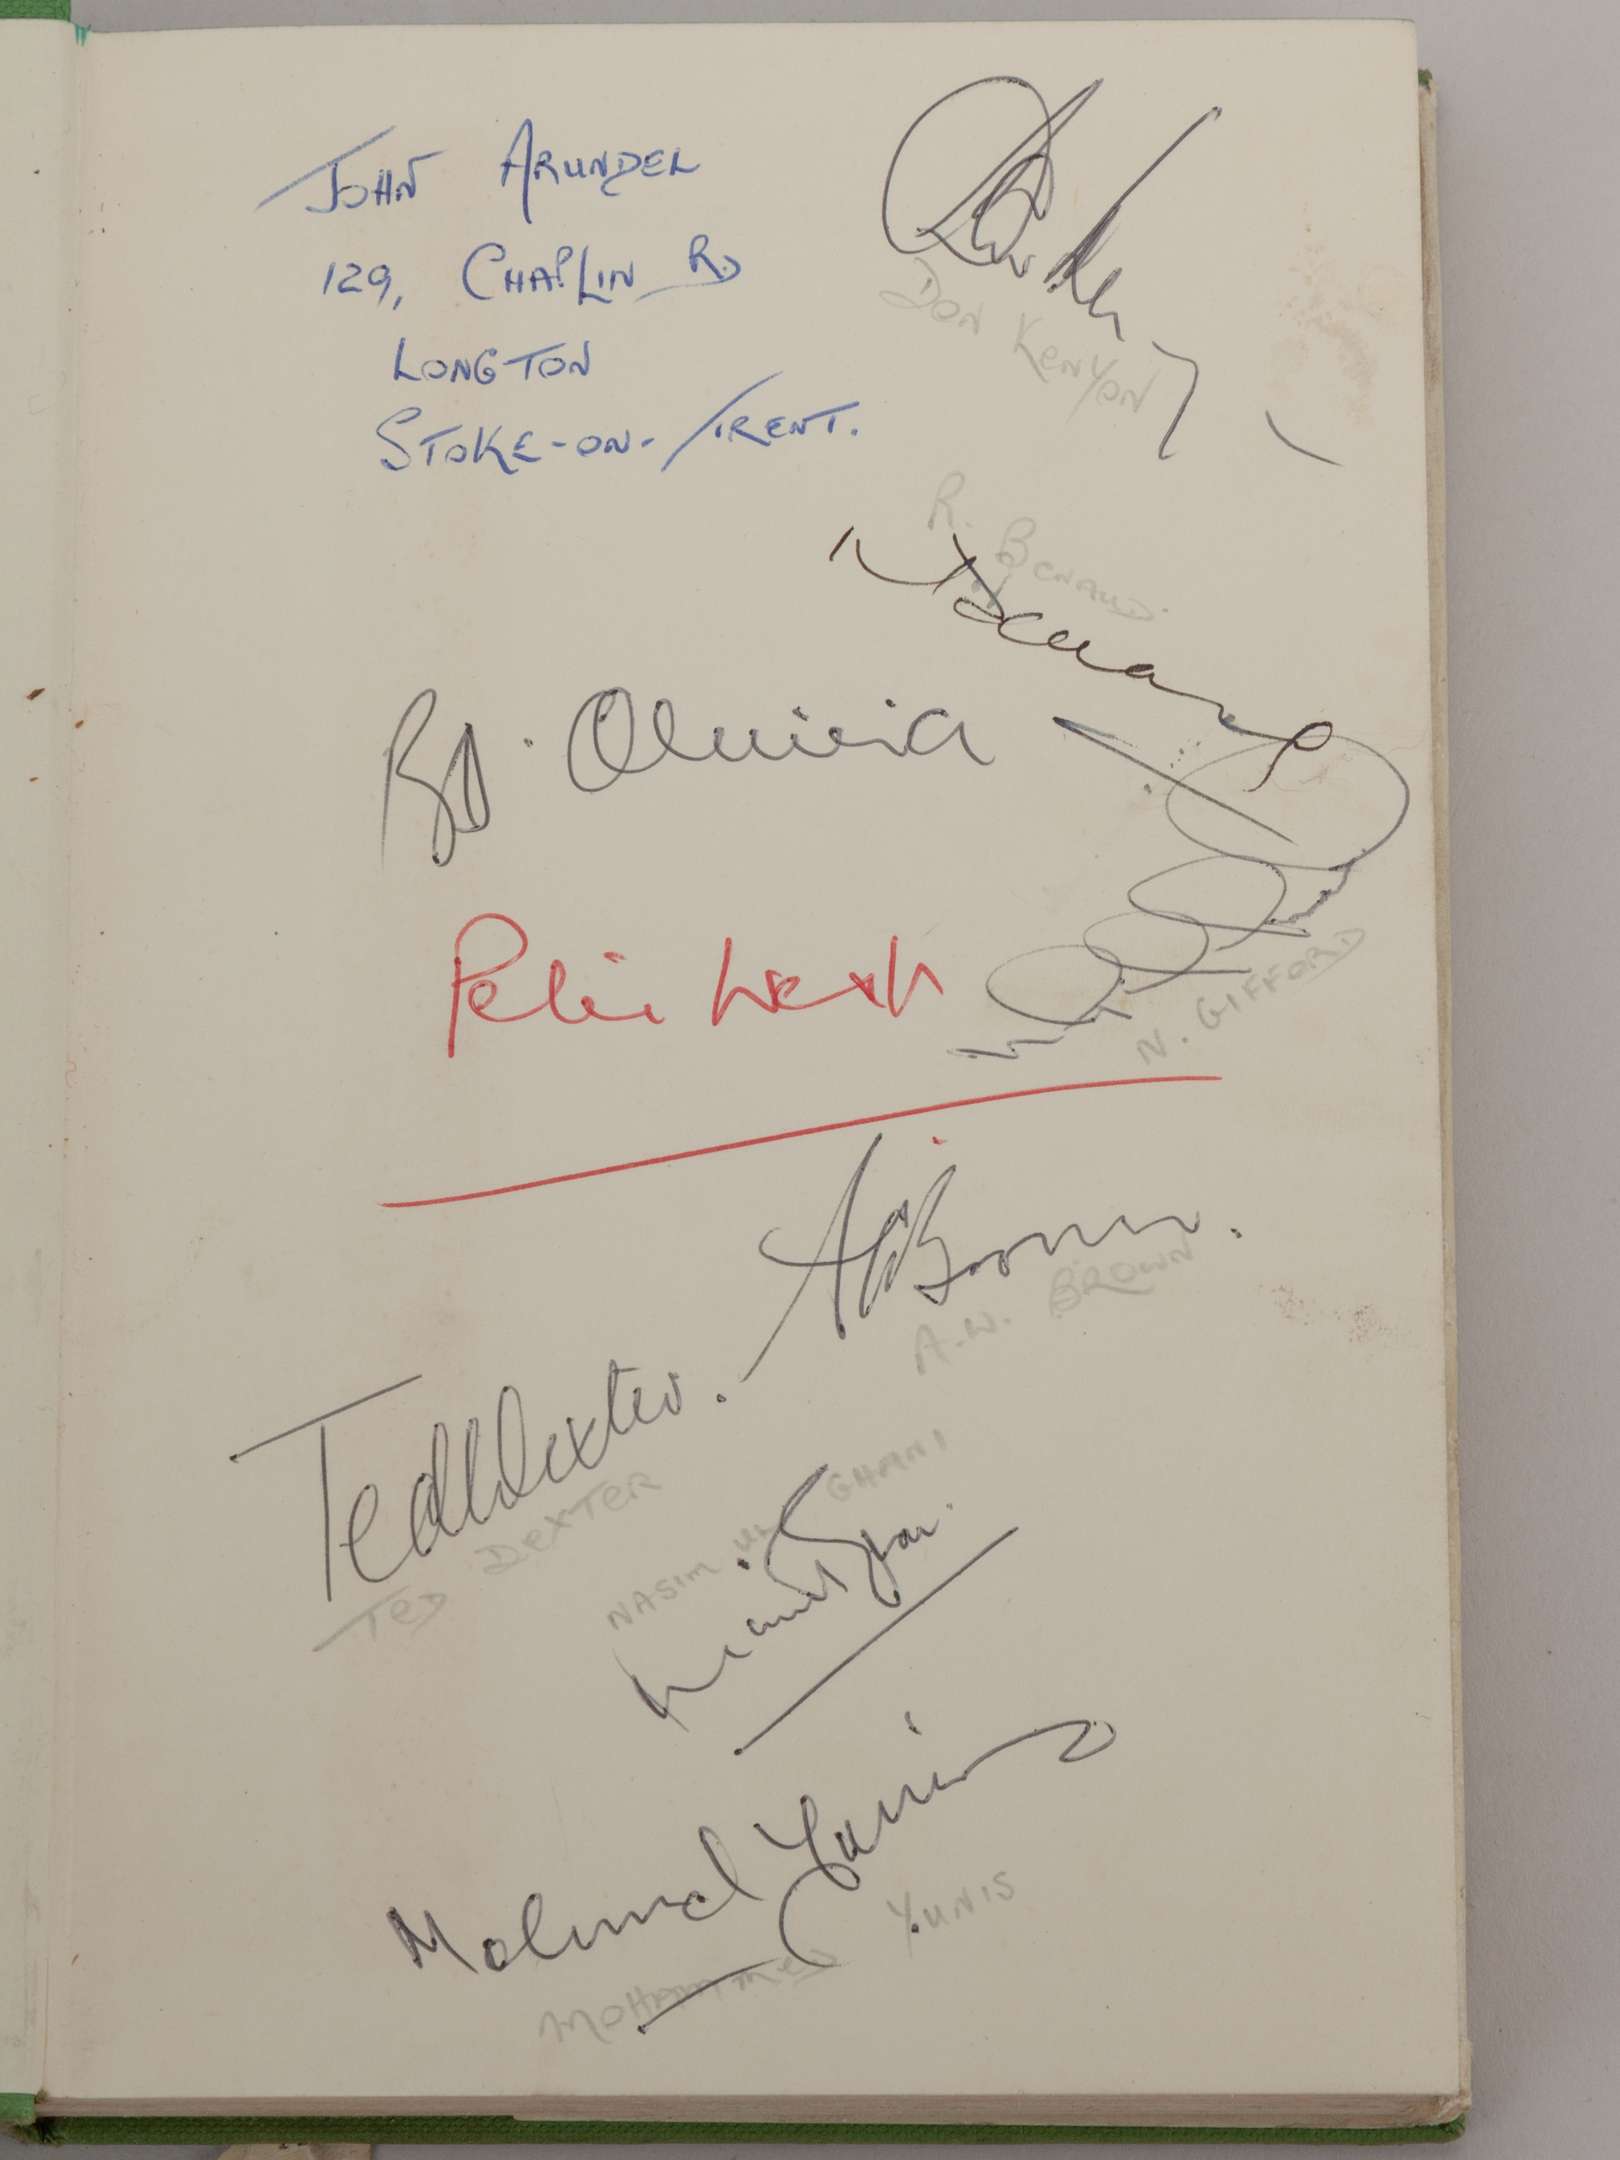 JOHN ARUNDEL
129, CHAPLIN RD
LONGTON
STOKE-ON-TRENT.
DON KENYON
R. BENAUD
B D'Oliveira
N. GIFFORD
A Brown.
A.W. BROWN
Ted Dexter.
TED DEXTER
NASIM UL GHANI
Mohamed Yunis
MOHAMMED YUNIS